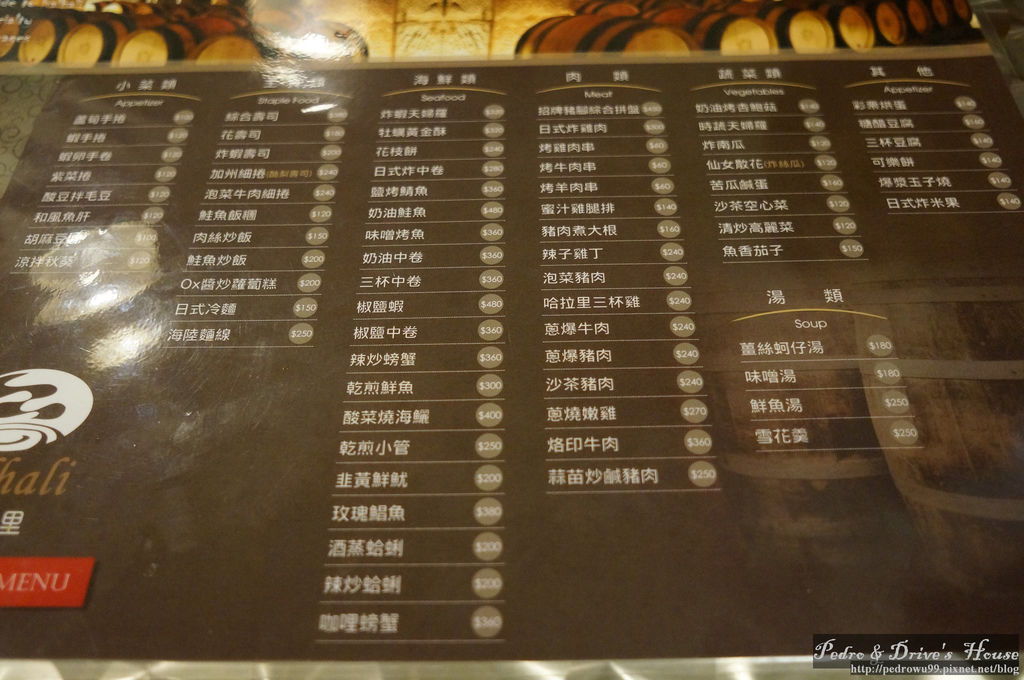 小菜類
Appetizer
蘆筍手捲
蝦手捲 $120
蝦卵手卷 $120
紫菜捲 $120
酸豆拌毛豆 $120
和風魚肝 $120
胡麻豆腐 $100
涼拌秋葵 $120
Staple Food
綜合壽司
花壽司
炸蝦壽司 $200
加州細捲(酪梨壽司) $240
泡菜牛肉細捲 $240
鮭魚飯糰 $120
肉絲炒飯 $150
鮭魚炒飯 $200
Ox醬炒蘿蔔糕 $200
日式冷麵 $150
海陸麵線 $250
海鮮類
Seafood
炸蝦天婦羅 $320
牡蠣黃金酥 $320
花枝餅 $240
日式炸中卷 $280
鹽烤鯖魚 $360
奶油鮭魚 $480
味噌烤魚 $360
奶油中卷 $360
三杯中卷 $360
椒鹽蝦 $480
椒鹽中卷 $360
辣炒螃蟹 $360
乾煎鮮魚 $300
酸菜燒海鱺 $400
乾煎小管 $250
韭黃鮮魷 $200
玫瑰鯧魚 $380
酒蒸蛤蜊 $200
辣炒蛤蜊 $200
咖哩螃蟹 $360
肉類
Meat
招牌豬腳綜合拼盤
日式炸雞肉
烤雞肉串 $60
烤牛肉串 $60
烤羊肉串 $60
蜜汁雞腿排 $140
豬肉煮大根 $160
辣子雞丁 $240
泡菜豬肉 $240
哈拉里三杯雞 $240
蔥爆牛肉 $240
蔥爆豬肉 $240
沙茶豬肉 $240
蔥燒嫩雞 $270
烙印牛肉 $360
蒜苗炒鹹豬肉 $250
蔬菜類
Vegetables
奶油烤杏鮑菇
時蔬天婦羅 $140
炸南瓜 $120
仙女散花(炸絲瓜) $120
苦瓜鹹蛋 $160
沙茶空心菜 $120
清炒高麗菜 $120
魚香茄子 $150
湯類
Soup
薑絲蚵仔湯 $180
味噌湯 $180
鮮魚湯 $250
雪花羹 $250
其他
Appetizer
彩棗烘蛋 $140
糖醋豆腐 $140
三杯豆腐 $140
可樂餅 $140
爆漿玉子燒 $140
日式炸米果 $140
hali
里
MENU
Pedro & Drive's House
http://pedrowu99.pixnet.net/blog